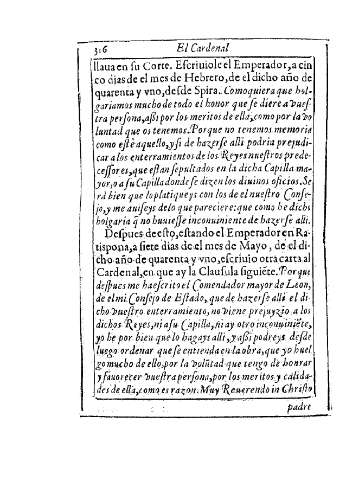 316 El Cardenal
llaua en su Corte. Escriuiole el Emperador, a cin
co dias de el mes de Hebrero, de el dicho año de
quarenta y vno, desde Spira. Comoquiera que hol-
gariamos mucho de todo el honor que se diere a vues
tra persona, assi por los meritos de ella, como por la vo
luntad que os tenemos. Porque no tenemos memoria
como esté aquello, y si de hazerse alli podria prejudi
car a los enterramientos de los Reyes nuestros prede-
cessores, que estan sepultados en la dicha Capilla ma
yor, o a su Capilla donde se dizen los diuinos oficios. Se
rá bien que lo platiqueys con los de el nuestro Conse-
jo, y me auiseys de lo que pareciere: como õ be dichs
holgaria q̃ no huuiesse inconuiniente de hazerse alli.
Despues de esto, estando el Emperador en Ra-
tispona, a siete dias de el mes de Mayo, de el di-
cho año de quarenta y vno, escriuio otra carta al
Cardenal, en que ay la Clausula siguiẽte. Porque
despues me ha escrito el Comendador mayor de Leon,
de el mi Consejo de Estado, que de hazerse alli el di
cho vuestro enterramiento, no viene prejuyzio a los
dichos Reyes, ni a su Capilla, ni ay otro incouuiniẽte,
yo he por bien que lo hagays alli, y assi podreys desde
luego ordenar que se entienda en la obra, que yo huel
go mucho de ello, por la volũtad que tengo de honrar
y fauorecer vuestra persona, por los meritos y calida-
des de ella, como es razon. Muy Reuerendo in Christo
padre